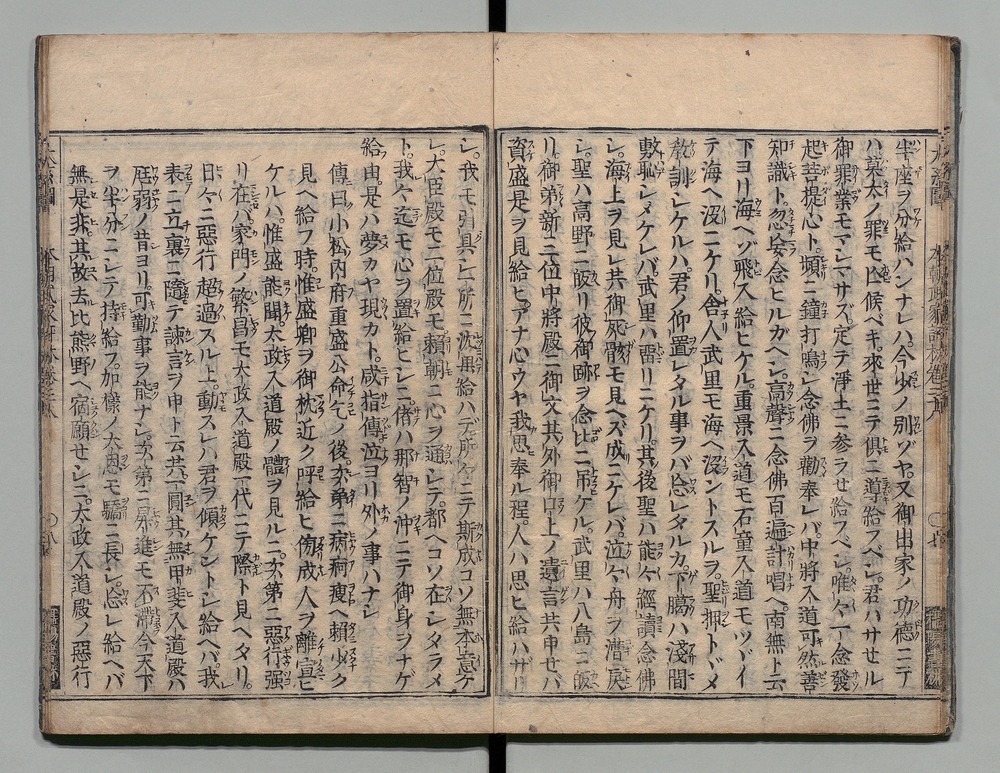 半座ヲ分給ハンナレハ。今少ノ別ゾヤ。又御出家ノ功德ニテ
ハ莫大ノ罪モ亡候ベキ。來世ニテ俱ニ導給フベシ。君ハサセル
御罪業モマシマサズ。定テ淨土ニ参ラせ給フベシ。唯々一念發
起菩提心ト。頻ニ鐘打鳴シ念佛ヲ勸奉レバ。中將入道可然善
知識ト。忽妄念ヒルガヘシ。高聲ニ念佛百遍計唱ヘ。南無ト云
下ヨリ海ヘゾ飛入給ヒケル。重景入道モ石童入道モツヾイ
テ海ヘ没ニケリ。舎人武里モ海ヘ没ントスルヲ。聖押トヾメ
教訓シケルハ。君ノ仰置レタル事ヲバ忘レタルカ。下臈ハ淺間
敷恥シメケレバ。武里ハ畱リニケリ。其後聖ハ能々經讀念佛
シ。海上ヲ見レ共御死骸モ見ヘズ成ニケレバ。泣々舟ヲ漕戻
シ。聖ハ高野ニ皈リ彼御跡ヲ念比ニ弔ケル。武里ハ八島ニ皈
リ。御弟新三位中將殿ニ御文其外御口上ノ遺言共申せバ
資盛是ヲ見給ヒ。アナ心ウヤ我思奉ル程。人ハ思ヒ給ハザリ
シ。我モ引具シ一所ニ沈果給ハデ。所々ニテ斯成コソ無本意ケ
レ。大臣殿モ二位殿モ賴朝ニ心ヲ通シテ。都ヘコソ在シタラメ
ト。我々迄モ心ヲ置給ヒシニ。偖ハ那智ノ沖ニテ御身ヲナゲ
給由。是ハ夢カヤ現カト。咸指傳泣ヨリ外ノ事ハナシ
傳曰小松内府重盛公命ノ後次第ニ病痾瘦ヘ賴少ク
見ヘ給フ時。惟盛卿ヲ御枕近ク呼給ヒ傍成人ヲ離宣ヒ
ケルハ。惟盛能聞。太政入道殿ノ體ヲ見ルニ。次第ニ惡行强
リ在バ。家門ノ繁昌モ大政入道殿一代ニテ際ト見ヘタリ。
日々ニ惡行超過スル上。動スレハ君ヲ傾ケントシ給ヘバ。我
表ニ立裏ニ隨テ諫言ヲ申ト云共。一圓其無甲斐。入道殿ハ
尫弱ノ昔ヨリ。可勤事ヲ能ナシ。次第ニ昇進モ不滯。今天下
ヲ半分ニシテ持給フ。加樣ノ大恩モ驕ニ長シ。忘レ給ヘバ
無是非。其故去比熊野ヘ宿願せシニ。太政入道殿ノ惡行